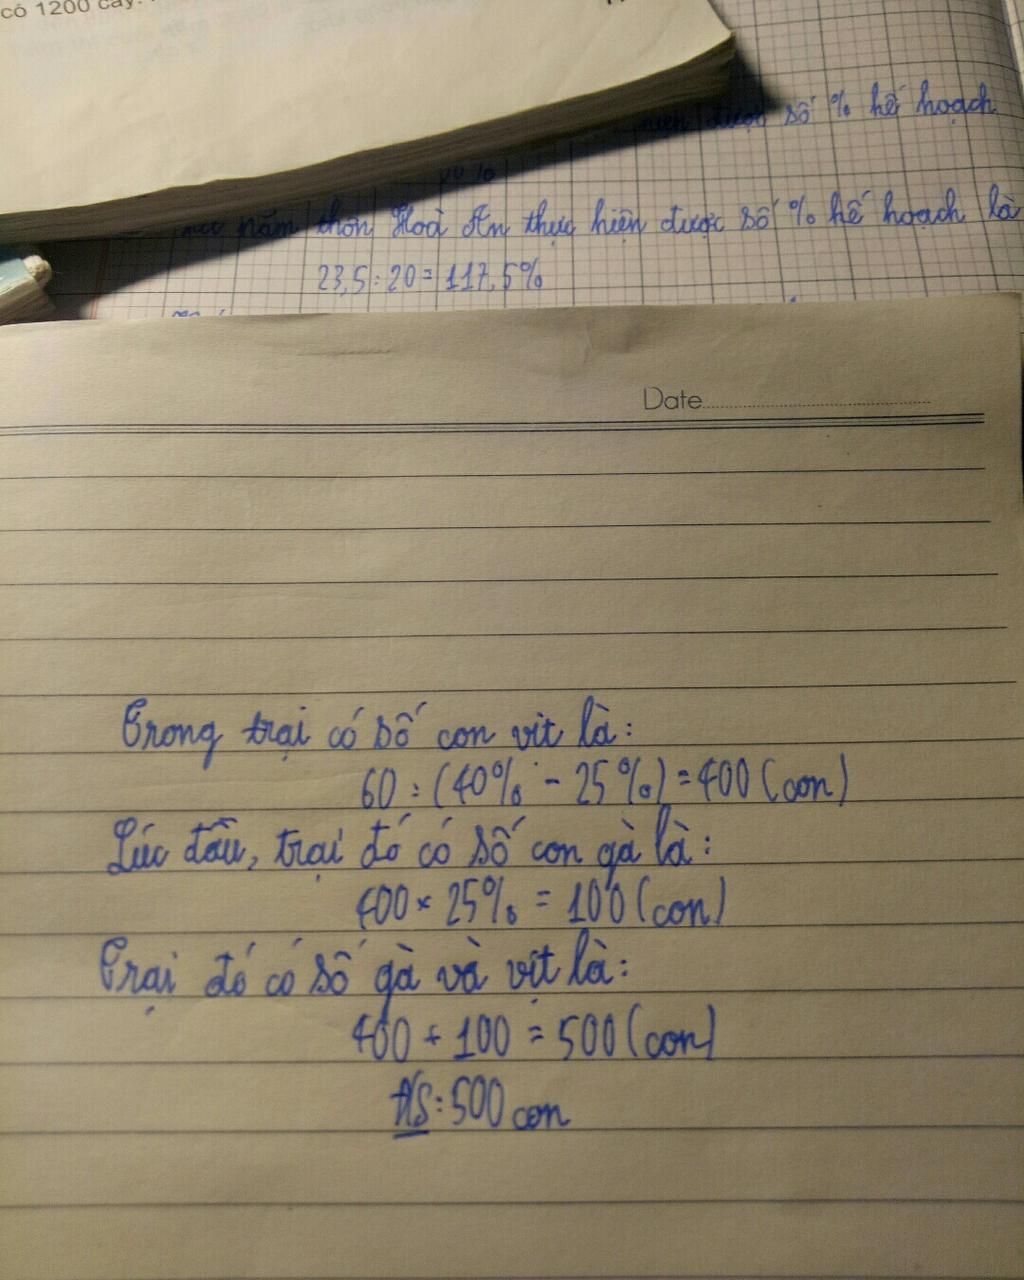 có 1200 cây.
được số % kế hoạch
năm thôn Hoà An thực hiện được số % kế hoạch là
23,5 : 20 = 117,5%
Date
Trong trại có số con vịt là:
60 : (40% - 25%) = 400 (con)
Lúc đầu, trại đó có số con gà là:
400 × 25% = 100 (con)
Trại đó có số gà và vịt là:
400 + 100 = 500 (con)
Đ/S: 500 con